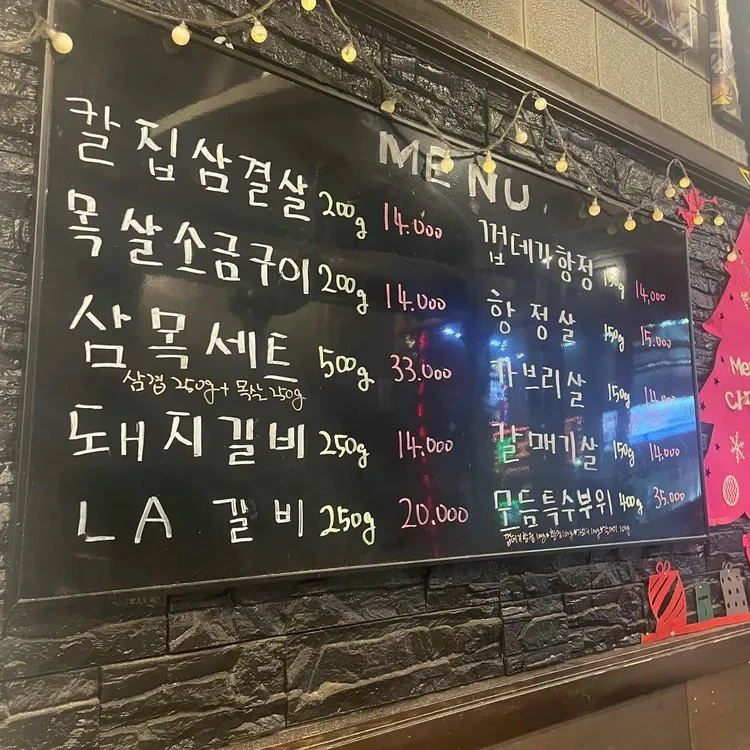 MENU
칼집삼결살 200g 14.000
목살소금구이 200g 14.000
삼목세트 500g 33.000
삼겹 250g + 목살 250g
돼지갈비 250g 14.000
LA 갈비 250g 20.000
껍데기항정 150g 14,000
항정살 150g 15.000
가브리살 150g 14.000
갈매기살 150g 14.000
모듬특수부위 400g 35.000
Me